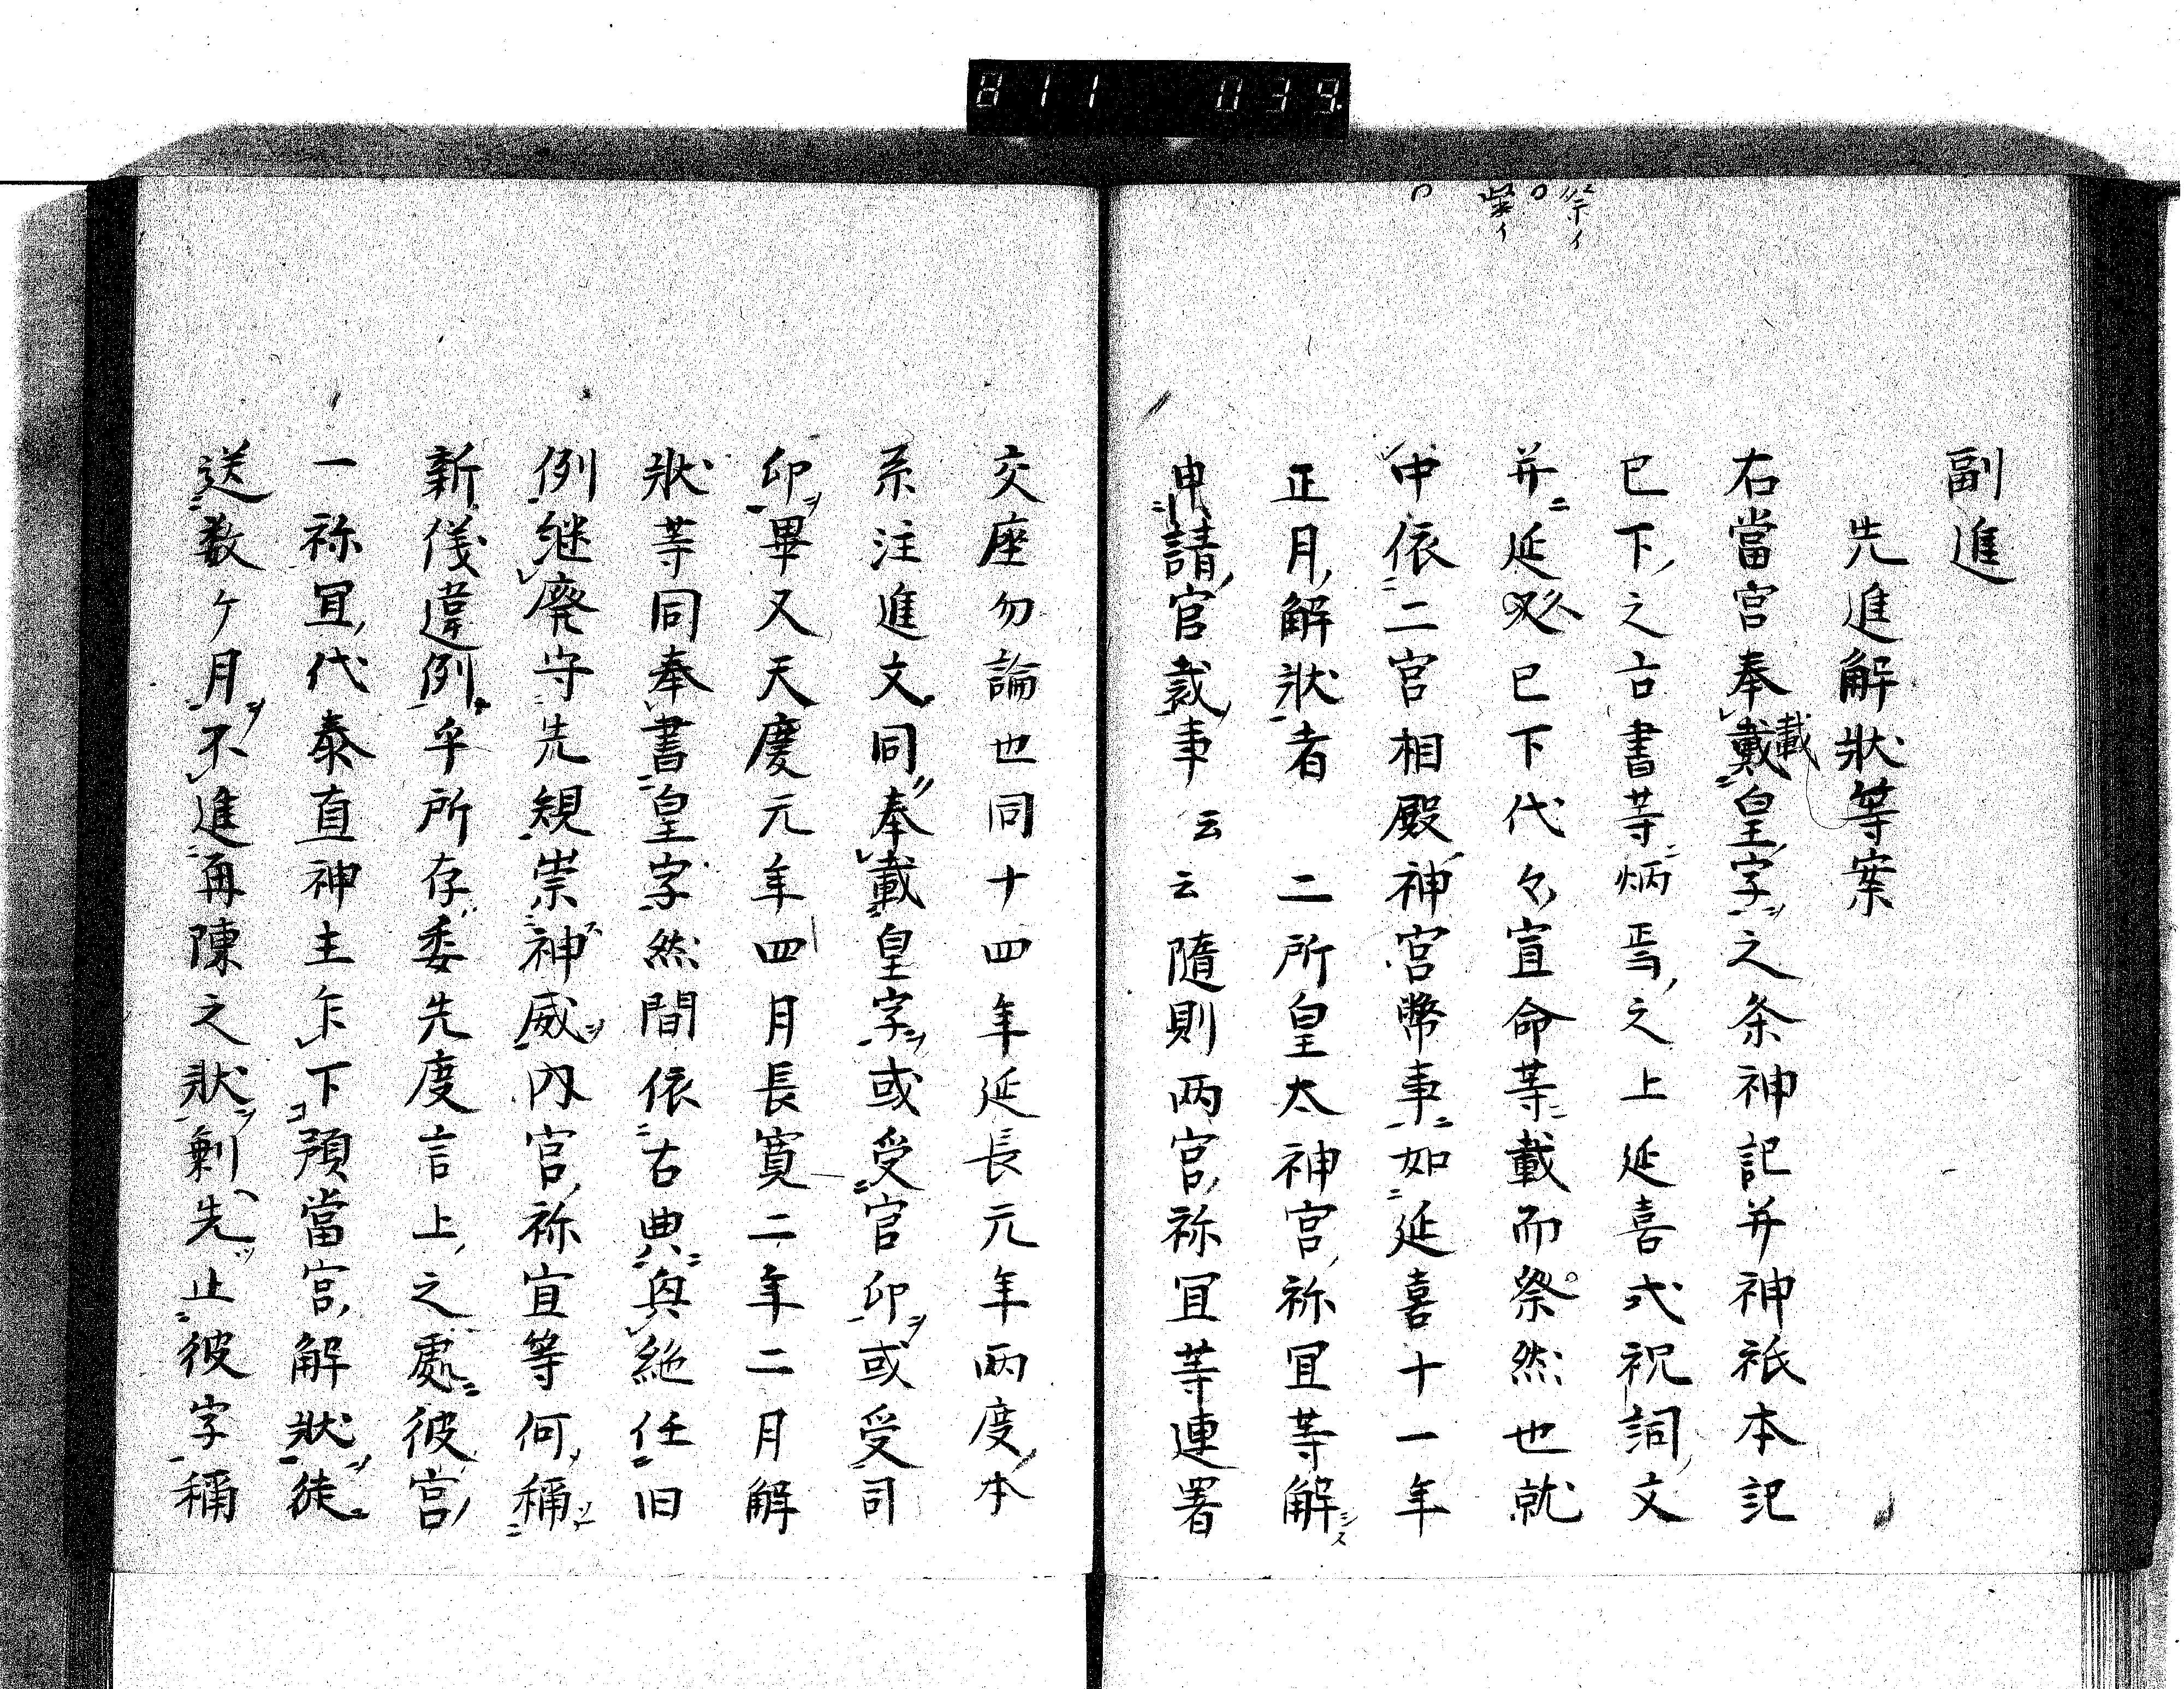 811 039
祭イ
柴イ
副進
先進解狀等案
右當宮奉戴皇字之条神記并神祇本記
載
已下之古書等炳焉之上延喜式祝詞文
并延久已下代々宣命等載而祭然也就
中依二宮相殿神宮幣事如延喜十一年
正月解狀者 二所皇太神宮祢冝等解
申請官裁事 云云隨則两宮祢冝等連署
交座勿論也同十四年延長元年两度本
系注進文同奉載皇字或受官印或受司
印畢又天慶元年四月長寛二年二月解
狀等同奉書皇字然間依古典與絶任旧
例継廃守先規崇神威内宮祢宜等何稱
新儀違例乎所存委先度言上之處彼宮
一祢冝代泰直神主乍下預當宮解狀徒
送数ケ月不進再陳之狀剰先止彼字稱